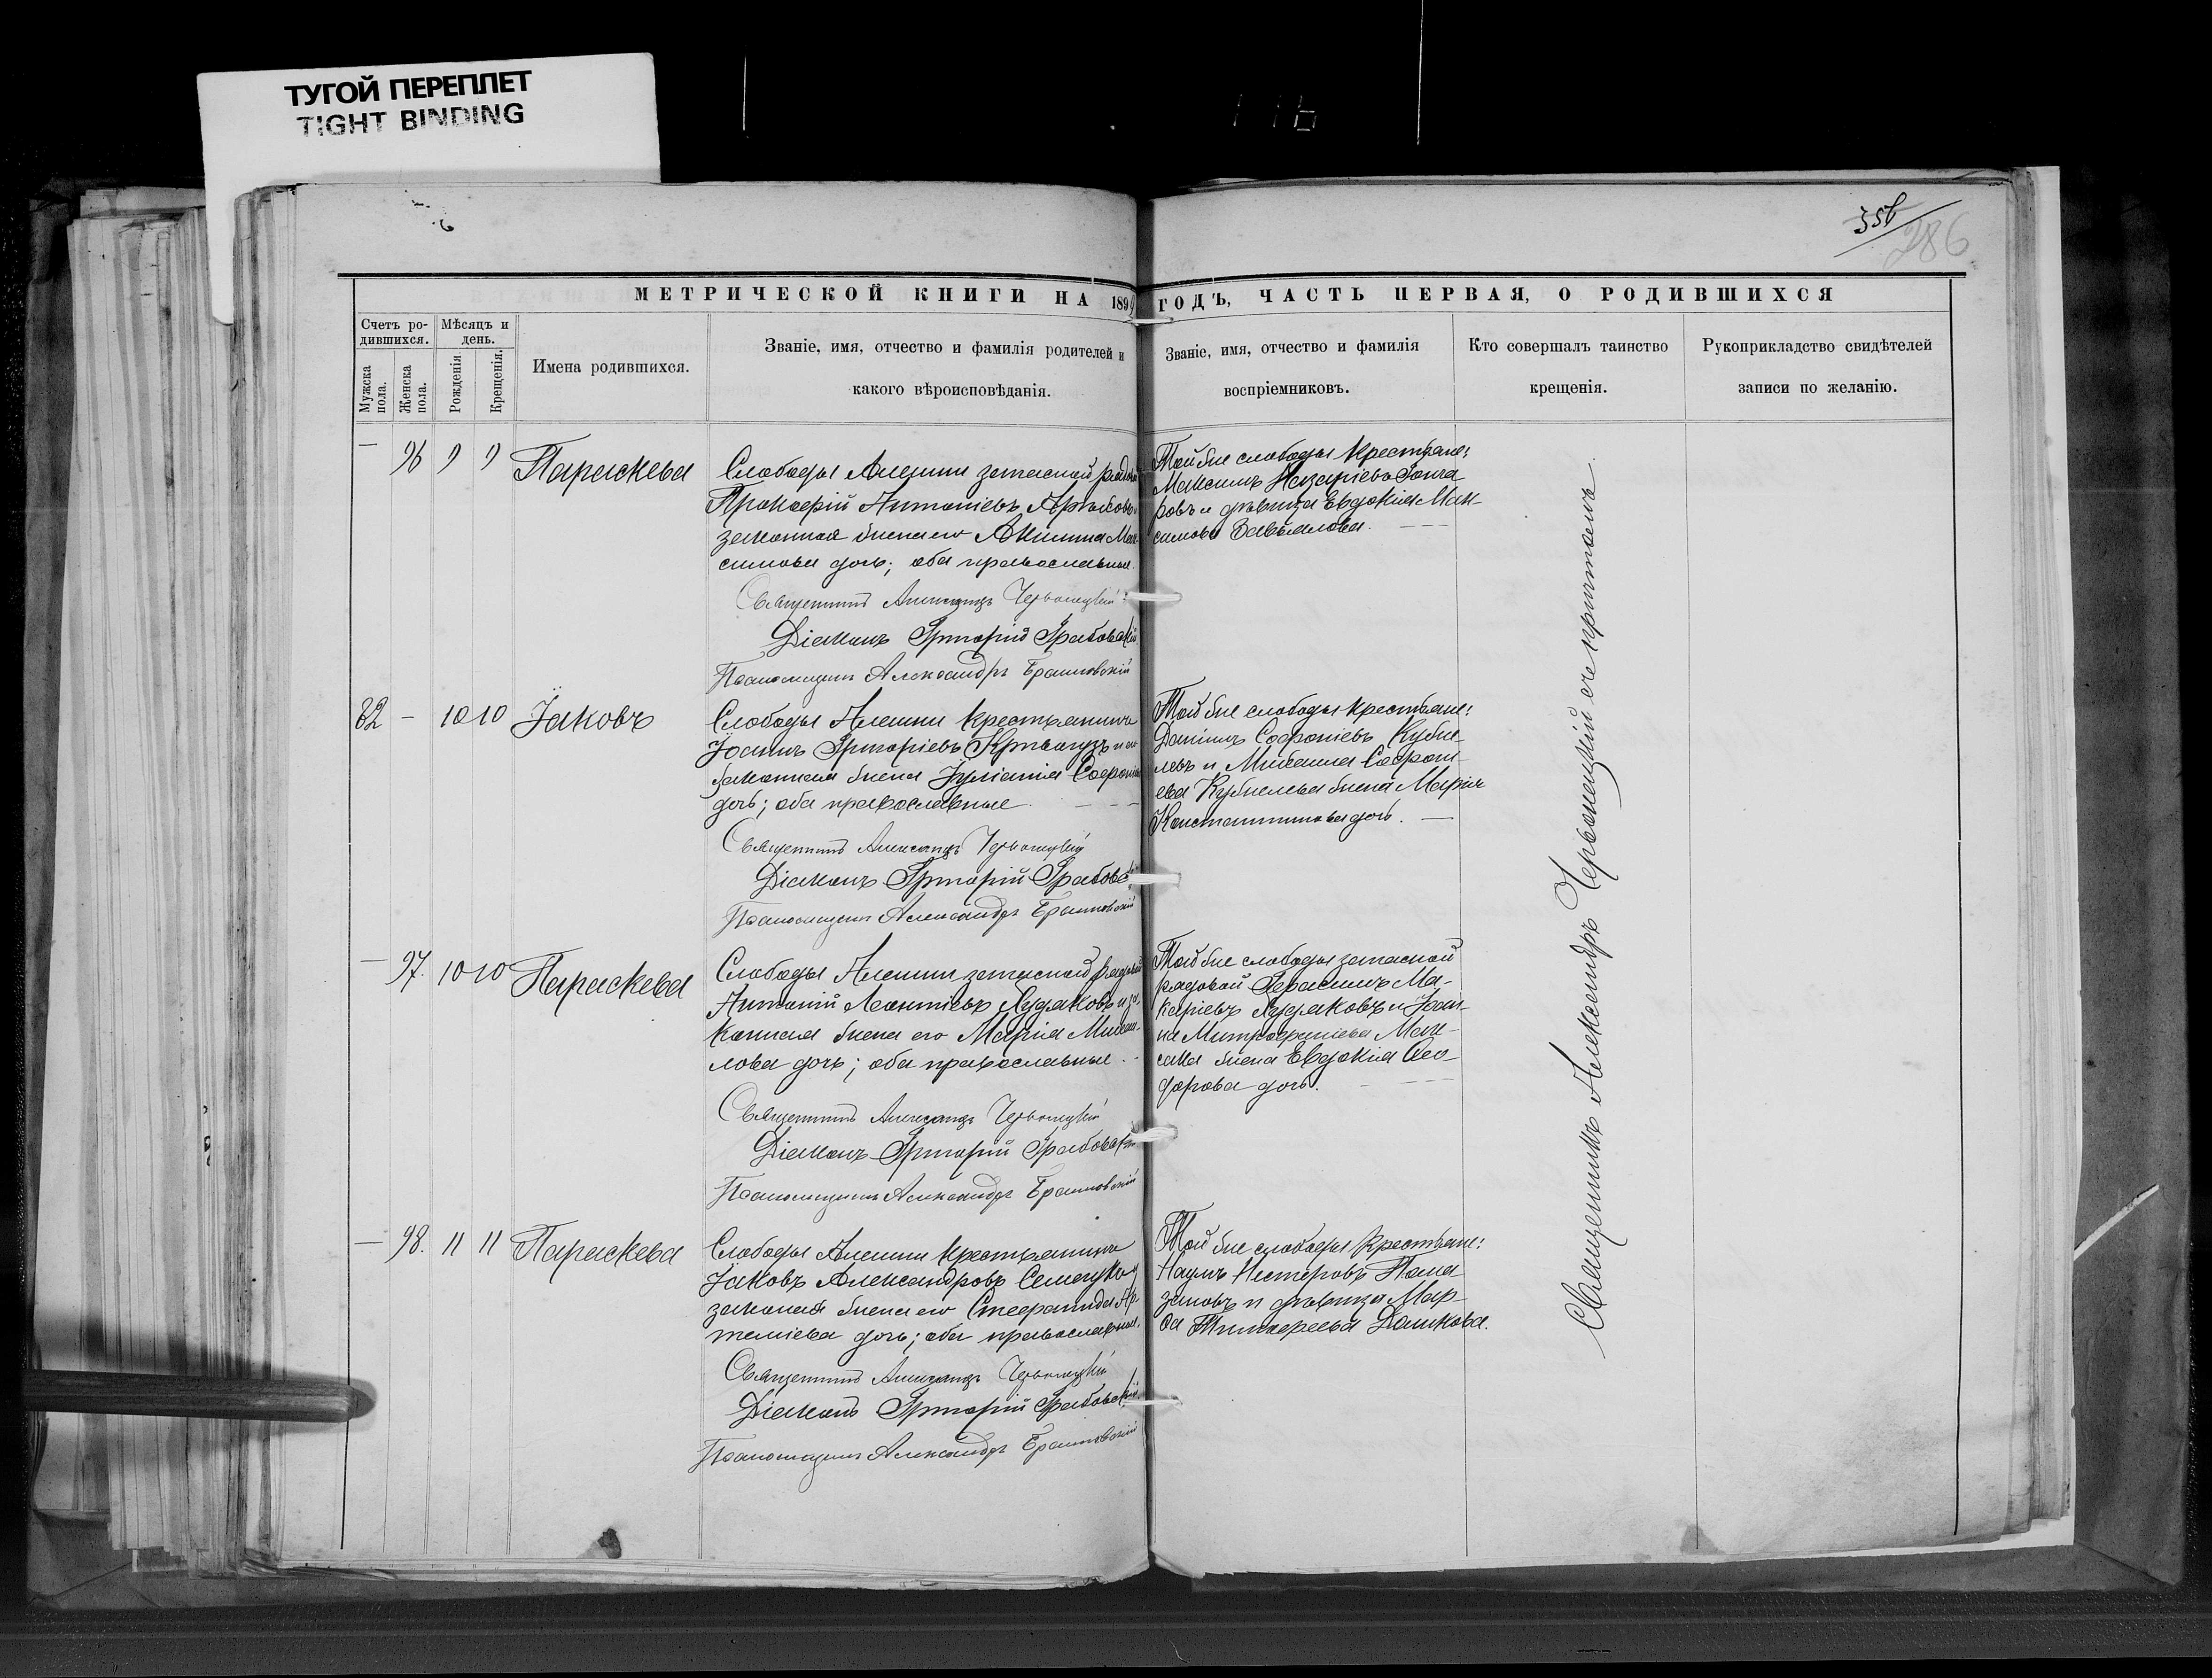 ТУГОЙ ПЕРЕПЛЕТ
TIGHT BINDING
116
356
286
МЕТРИЧЕСКОЙ КНИГИ НА 189 ГОДЪ, ЧАСТЬ ПЕРВАЯ, О РОДИВШИХСЯ
Счетъ ро-
дившихся.
Мужска пола.
Женска пола.
Мѣсяцъ и
день.
Рожденія.
Крещенія.
Имена родившихся.
Званіе, имя, отчество и фамилія родителей и
какого вѣроисповѣданія.
Званіе, имя, отчество и фамилія
воспріемниковъ.
Кто совершалъ таинство
крещенія.
Рукоприкладство свидѣтелей
записи по желанію.
— 96 9 9 Параскева
Слободы Алешни запасной рядовой
Прокофій Антоніевъ
законная жена его Акилина Мак-
симова дочь; оба православные.
Священникъ Александръ Червонецкій
Діаконъ Григорій Грабовскій
Псаломщикъ Александръ
Той же слободы крестьяне:
Максимъ Назаріевъ Гонча-
ровъ и дѣвица Евдокія Мак-
симова Завьялова.
82 — 10 10 Іаковъ
Слободы Алешни крестьянинъ
Іоаннъ Григоріевъ и его
законная жена Іуліанія Софроніева
дочь; оба православные
Священникъ Александръ Червонецкій
Діаконъ Григорій Грабовскій
Псаломщикъ Александръ
Той же слободы крестьяне:
Даніилъ Софроніевъ Кубы-
левъ и Михаила Софрони-
ева Кубылева жена Марія
Константинова дочь.
— 97. 10 10 Параскева
Слободы Алешни запасной рядовой
Антоній Леонтіевъ Худяковъ и за-
конная жена его Марія Михаи-
лова дочь; оба православные.
Священникъ Александръ Червонецкій
Діаконъ Григорій Грабовскій
Псаломщикъ Александръ
Той же слободы запасной
рядовой Герасимъ Ма-
каріевъ Худяковъ и Іоан-
на Митрофаніева
жена Евдокія Ѳео-
дорова дочь.
— 98. 11 11 Параскева
Слободы Алешни крестьянинъ
Іаковъ Александровъ и
законая жена его Стефанида Ар-
теміева дочь; оба православные.
Священникъ Александръ Червонецкій
Діаконъ Григорій Грабовскій
Псаломщикъ Александръ
Той же слободы крестьяне:
Наумъ Нестеровъ
и дѣвица Мар-
ѳа Тимофеева Дашкова.
Священникъ Александръ Червонецкій съ причтомъ.